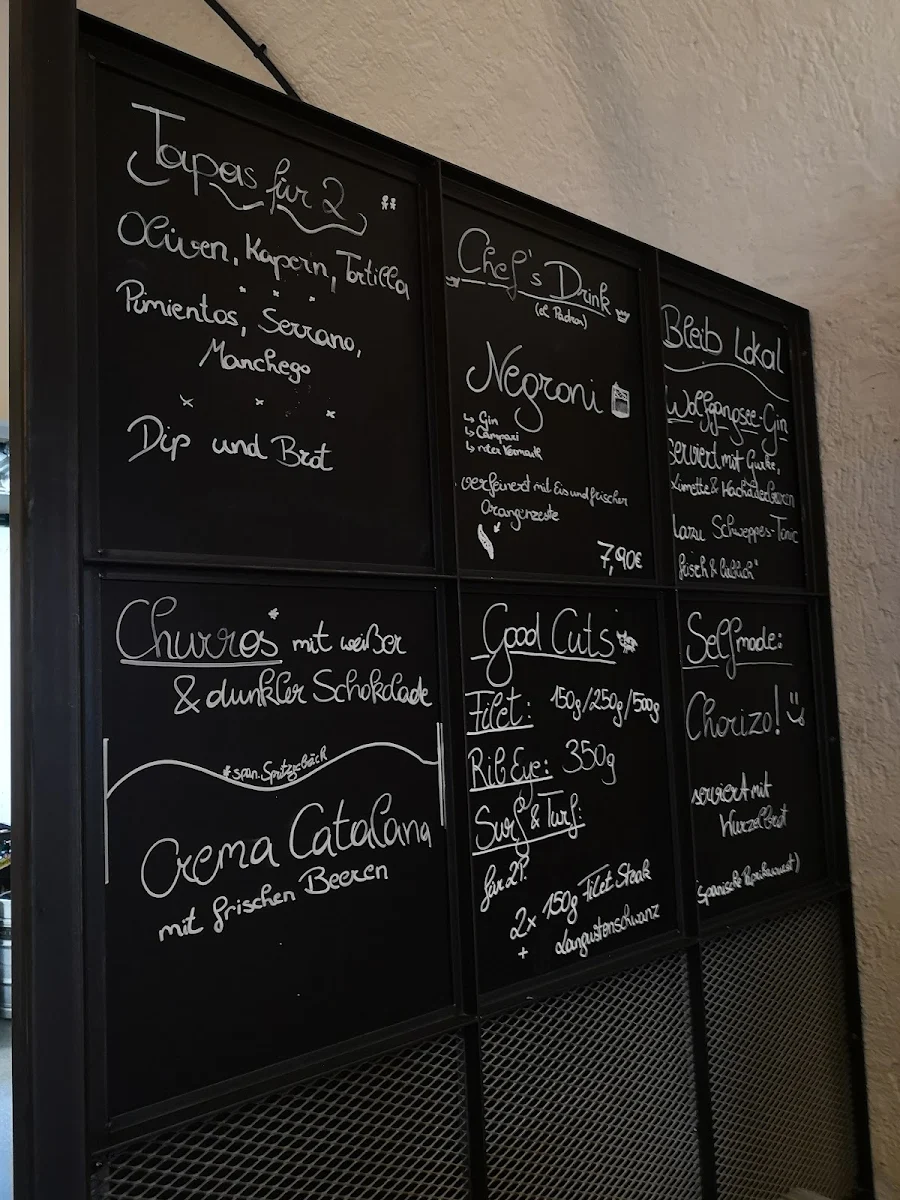 Tapas für 2
Oliven, Kapern, Tortilla
Pimientos, Serrano,
Manchego
Dip und Brot
Chef's Drink
(el Padron)
Negroni
Gin
Campari
roter Wermuth
verfeinert mit Eis und frischer
Orangenzeste
7,90€
Bleib Lokal
Wolfgangsee-Gin
serviert mit Gurke,
Limette & Wachholderbeeren
dazu Schweppes-Tonic
frisch & lieblich"
Churros* mit weißer
& dunkler Schokolade
*span. Spritzgebäck
Crema Catalana
mit frischen Beeren
Good Cuts
Filet: 150g/250g/500g
Rib Eye: 350g
Surf & Turf:
für 2P.
2x 150g Filet Steak
+ Langustenschwanz
Selfmade:
Chorizo!
serviert mit
Wurzelbrot
(spanische Paprikawurst)